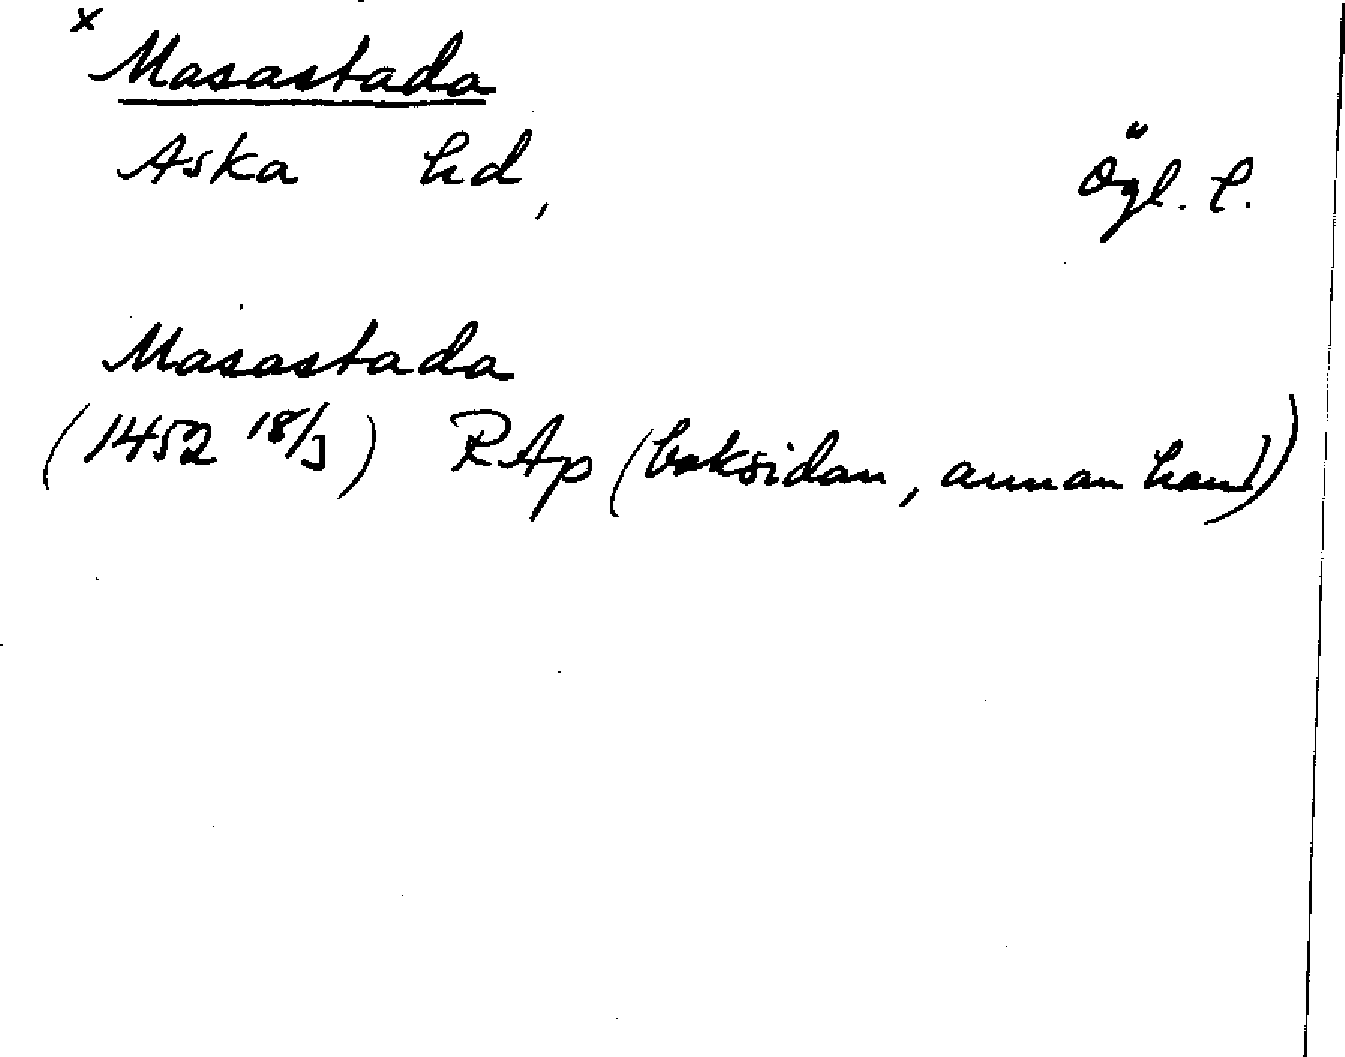 x Masastada
Aska hd, Ögl. l.
Masastada
(1452 18/3) RAp (baksidan, annan hand)